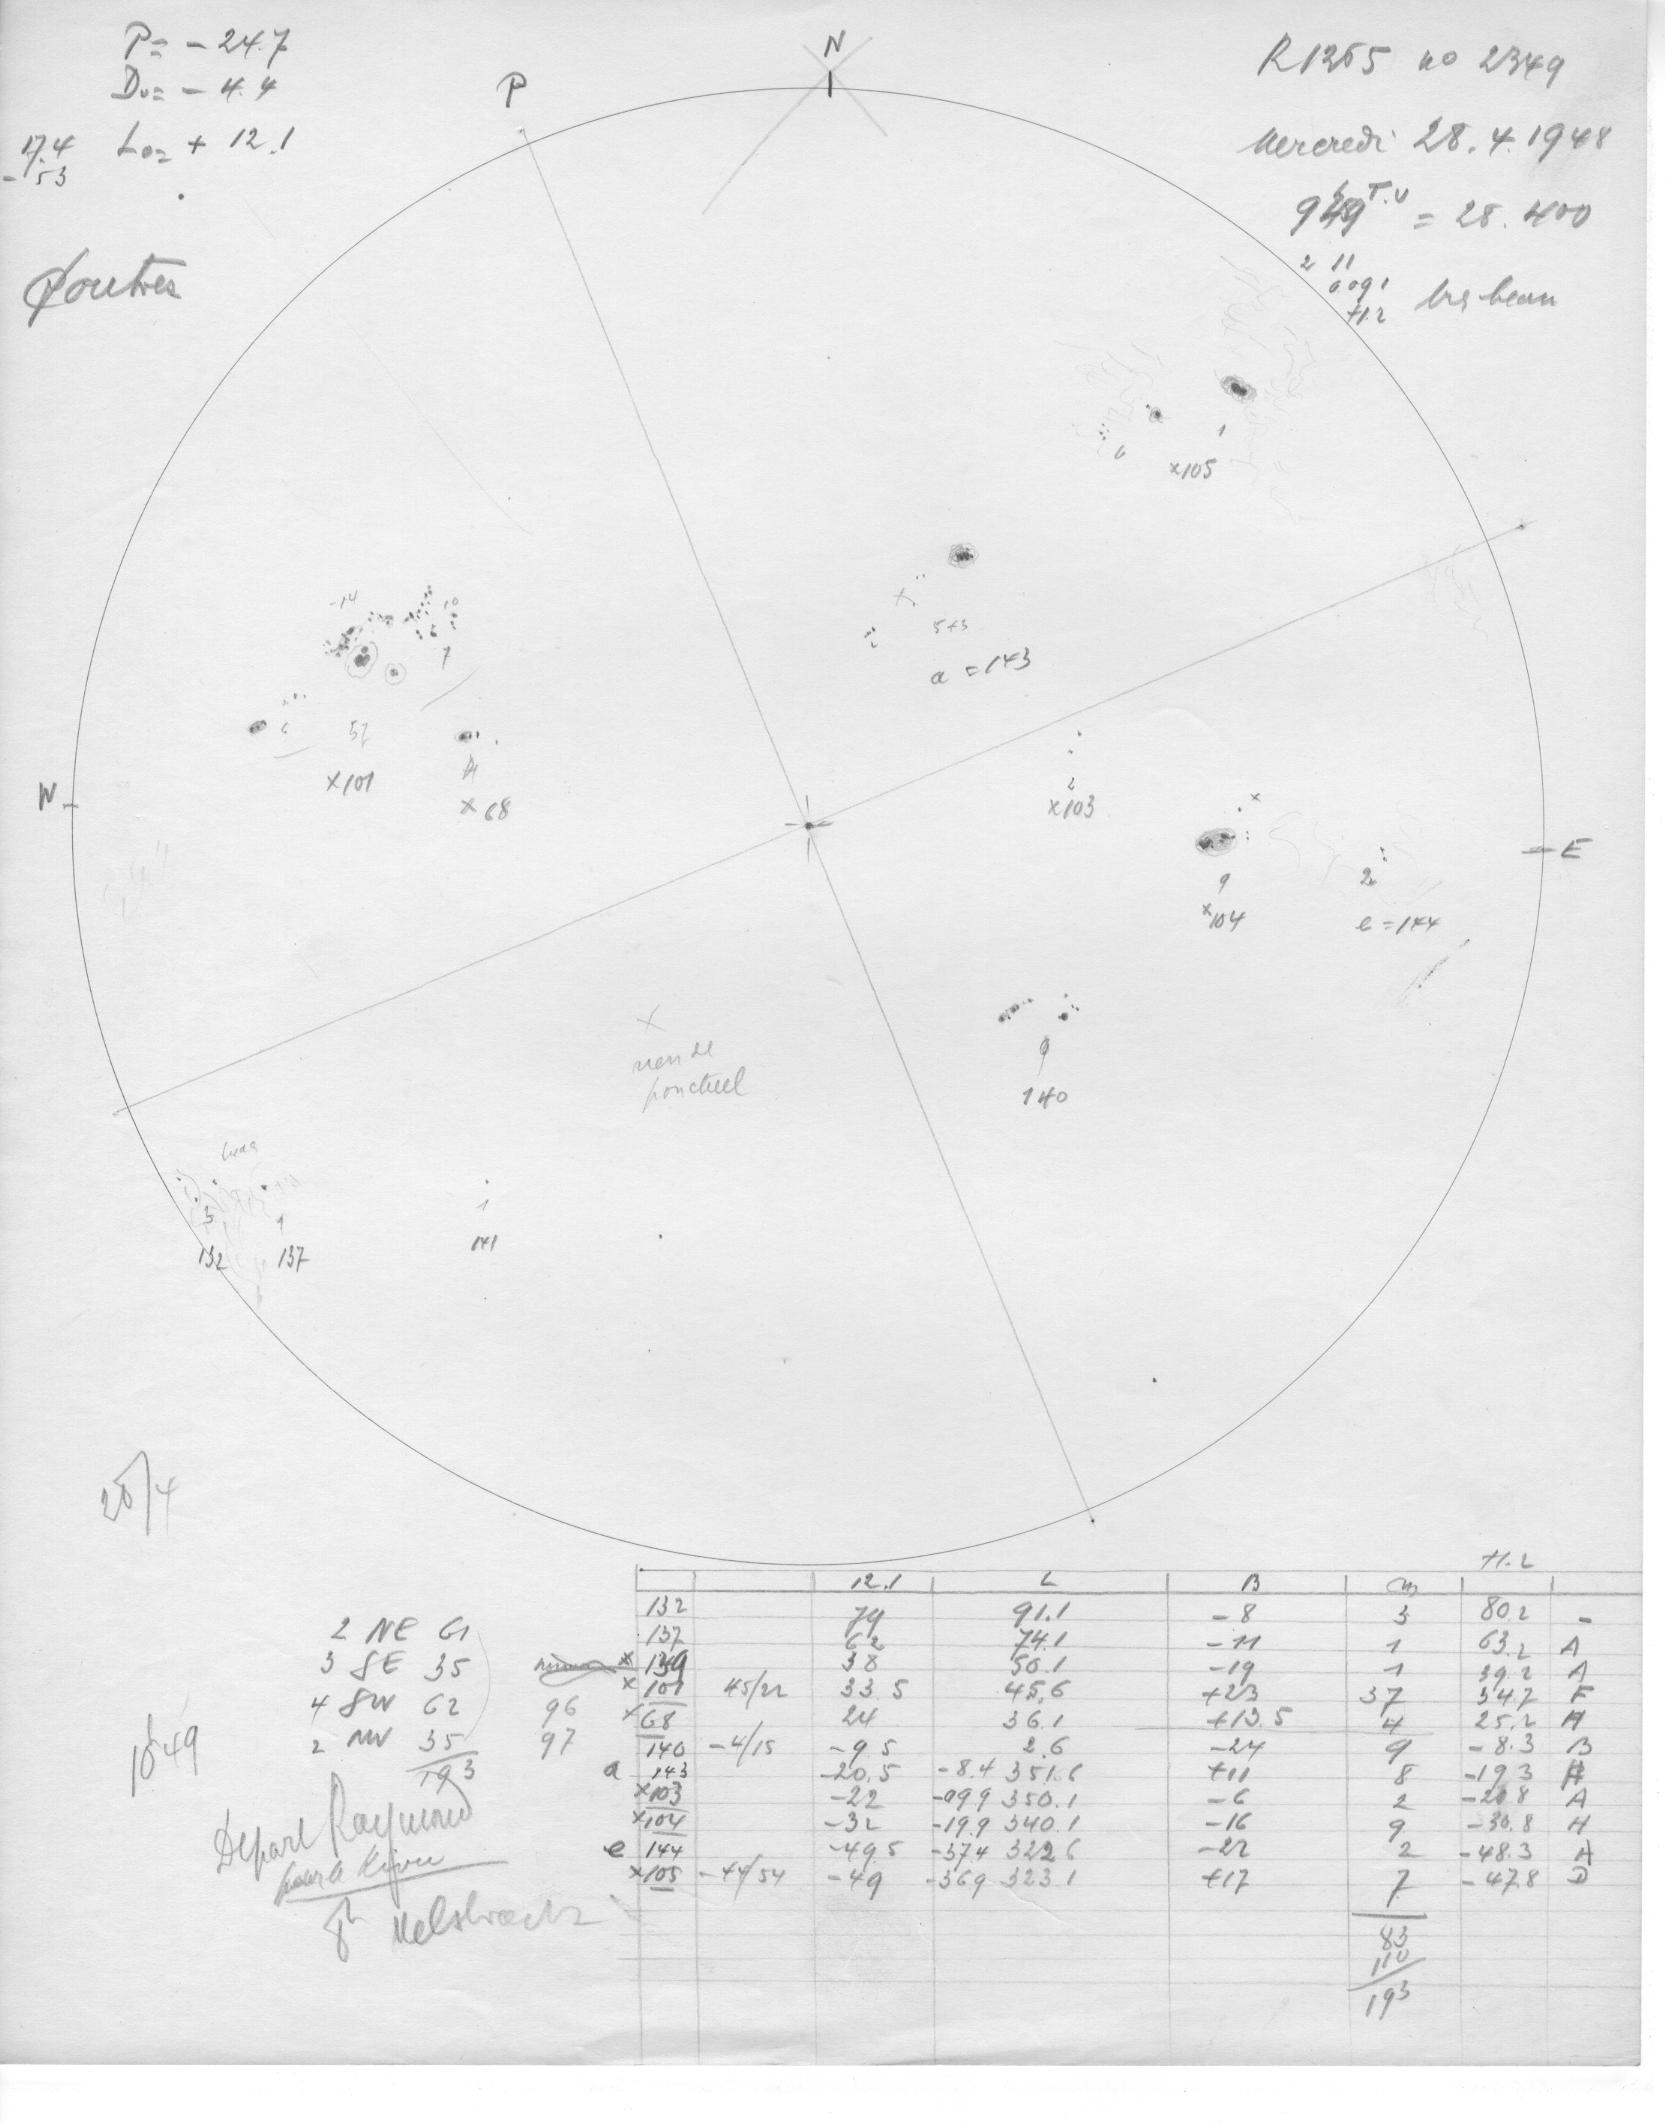 P= - 24.7
D0= - 4.4
L0= + 12.1
17.4
- 53
P
N
R1265 no 2349
Mercredi 28.4.1948
9h49 T.U = 28.400
2 11
0.091
+1.2
très beau
1
6
×105
-14
10
6
7
6
52
×101
4
×68
×
5+3
a = 143
2
×103
×
9
×104
2
e = 144
W
E
×
rien de
ponctuel
9
140
3
1
132
137
1
141
28/4
10h49
2 NE 61
3 SE 35
4 SW 62
2 NW 35
193
96
97
Départ Raymond
pour le Kivu
8h Melsbroeck
+1.2
12.1 L B
132 79 91.1 -8 3 80.2 -
137 62 74.1 -11 1 63.2 A
× 139 38 50.1 -19 1 39.2 A
× 101 45/22 33.5 45.6 +23 37 34.7 F
× 68 24 36.1 +13.5 4 25.2 H
140 -4/15 -9.5 2.6 -24 9 -8.3 B
a 143 -20.5 -8.4 351.6 +11 8 -19.3 H
×103 -22 -09.9 350.1 -6 2 -20.8 A
×104 -32 -19.9 340.1 -16 9 -30.8 H
e 144 -49.5 -37.4 322.6 -22 2 -48.3 A
×105 -44/54 -49 -36.9 323.1 +17 7 -47.8 D
83
110
193